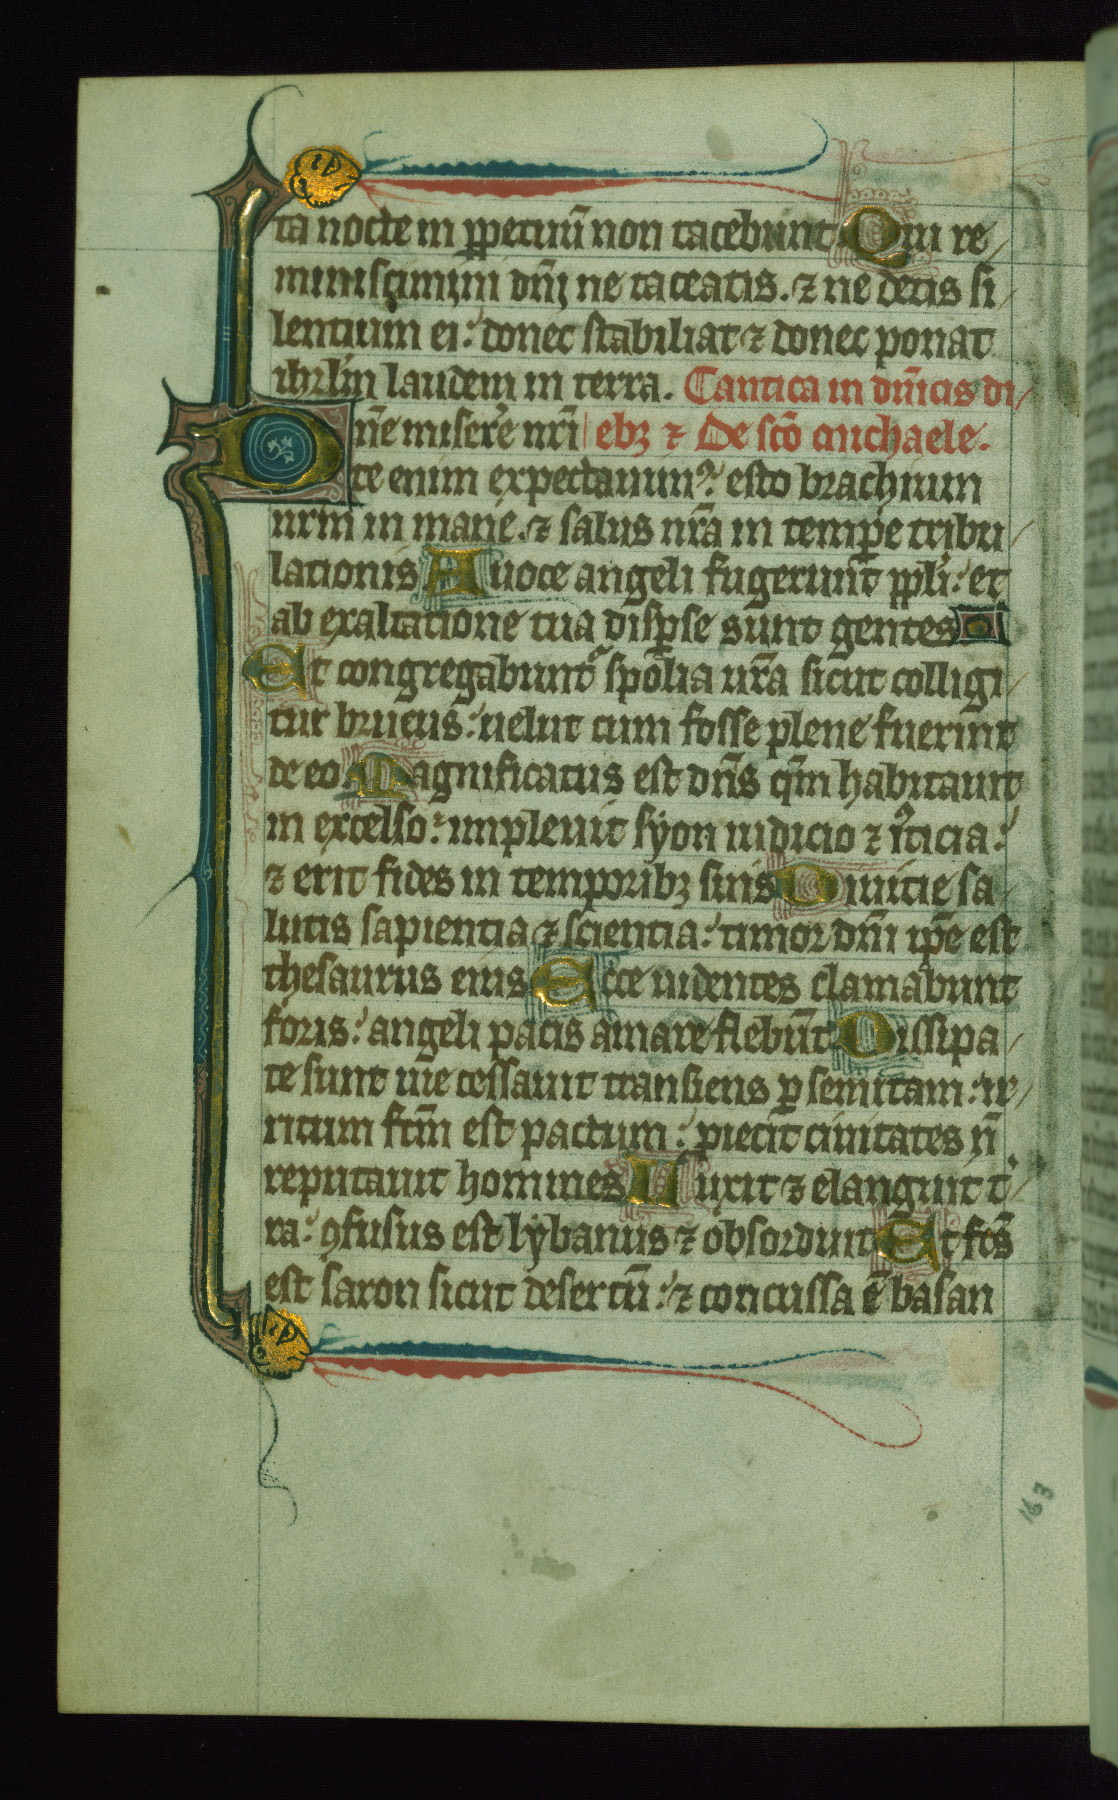 ta nocte in ꝑpetuū non tacebunt Qui re
miniscimini dn̄i ne taceatis. ⁊ ne detis si
lentium ei: donec stabiliat ⁊ donec ponat
ihrl̄m laudem in terra. Cantica in dn̄icis di
Dn̄e misere nr̄i ebꝫ ⁊ De sc̄o michaele.
te enim expectauimꝰ: esto brachium
nrm̄ in mane. ⁊ salus nr̄a in temꝑe tribu
lationis A uoce angeli fugerunt ppl̄i: et
ab exaltatione tua disꝑse sunt gentes
Et congregabunt᷑ spolia ur̄a sicut colligi
tur brucus: uelut cum fosse plene fuerint
de eo Magnificatus est dn̄s qm̄ habitauit
in excelso: impleuit syon iudicio ⁊ iꝰticia:
⁊ erit fides in temporibꝫ suis Diuitie sa
lutis sapientia ⁊ scientia: timor dn̄i ip̄e est
thesaurus eius Ecce uidentes clamabunt
foris: angeli pacis amare flebūt Dissipa
te sunt uie cessauit transiens ꝑ semitam: ir
ritum ftm̄ est pactum: piecit ciuitates n̄
reputauit homines Luxit ⁊ elanguit t̓
ra: ꝯfusus est lybanus ⁊ obsorduit Et fc̄s
est saron sicut desertū: ⁊ concussa ē basan
163